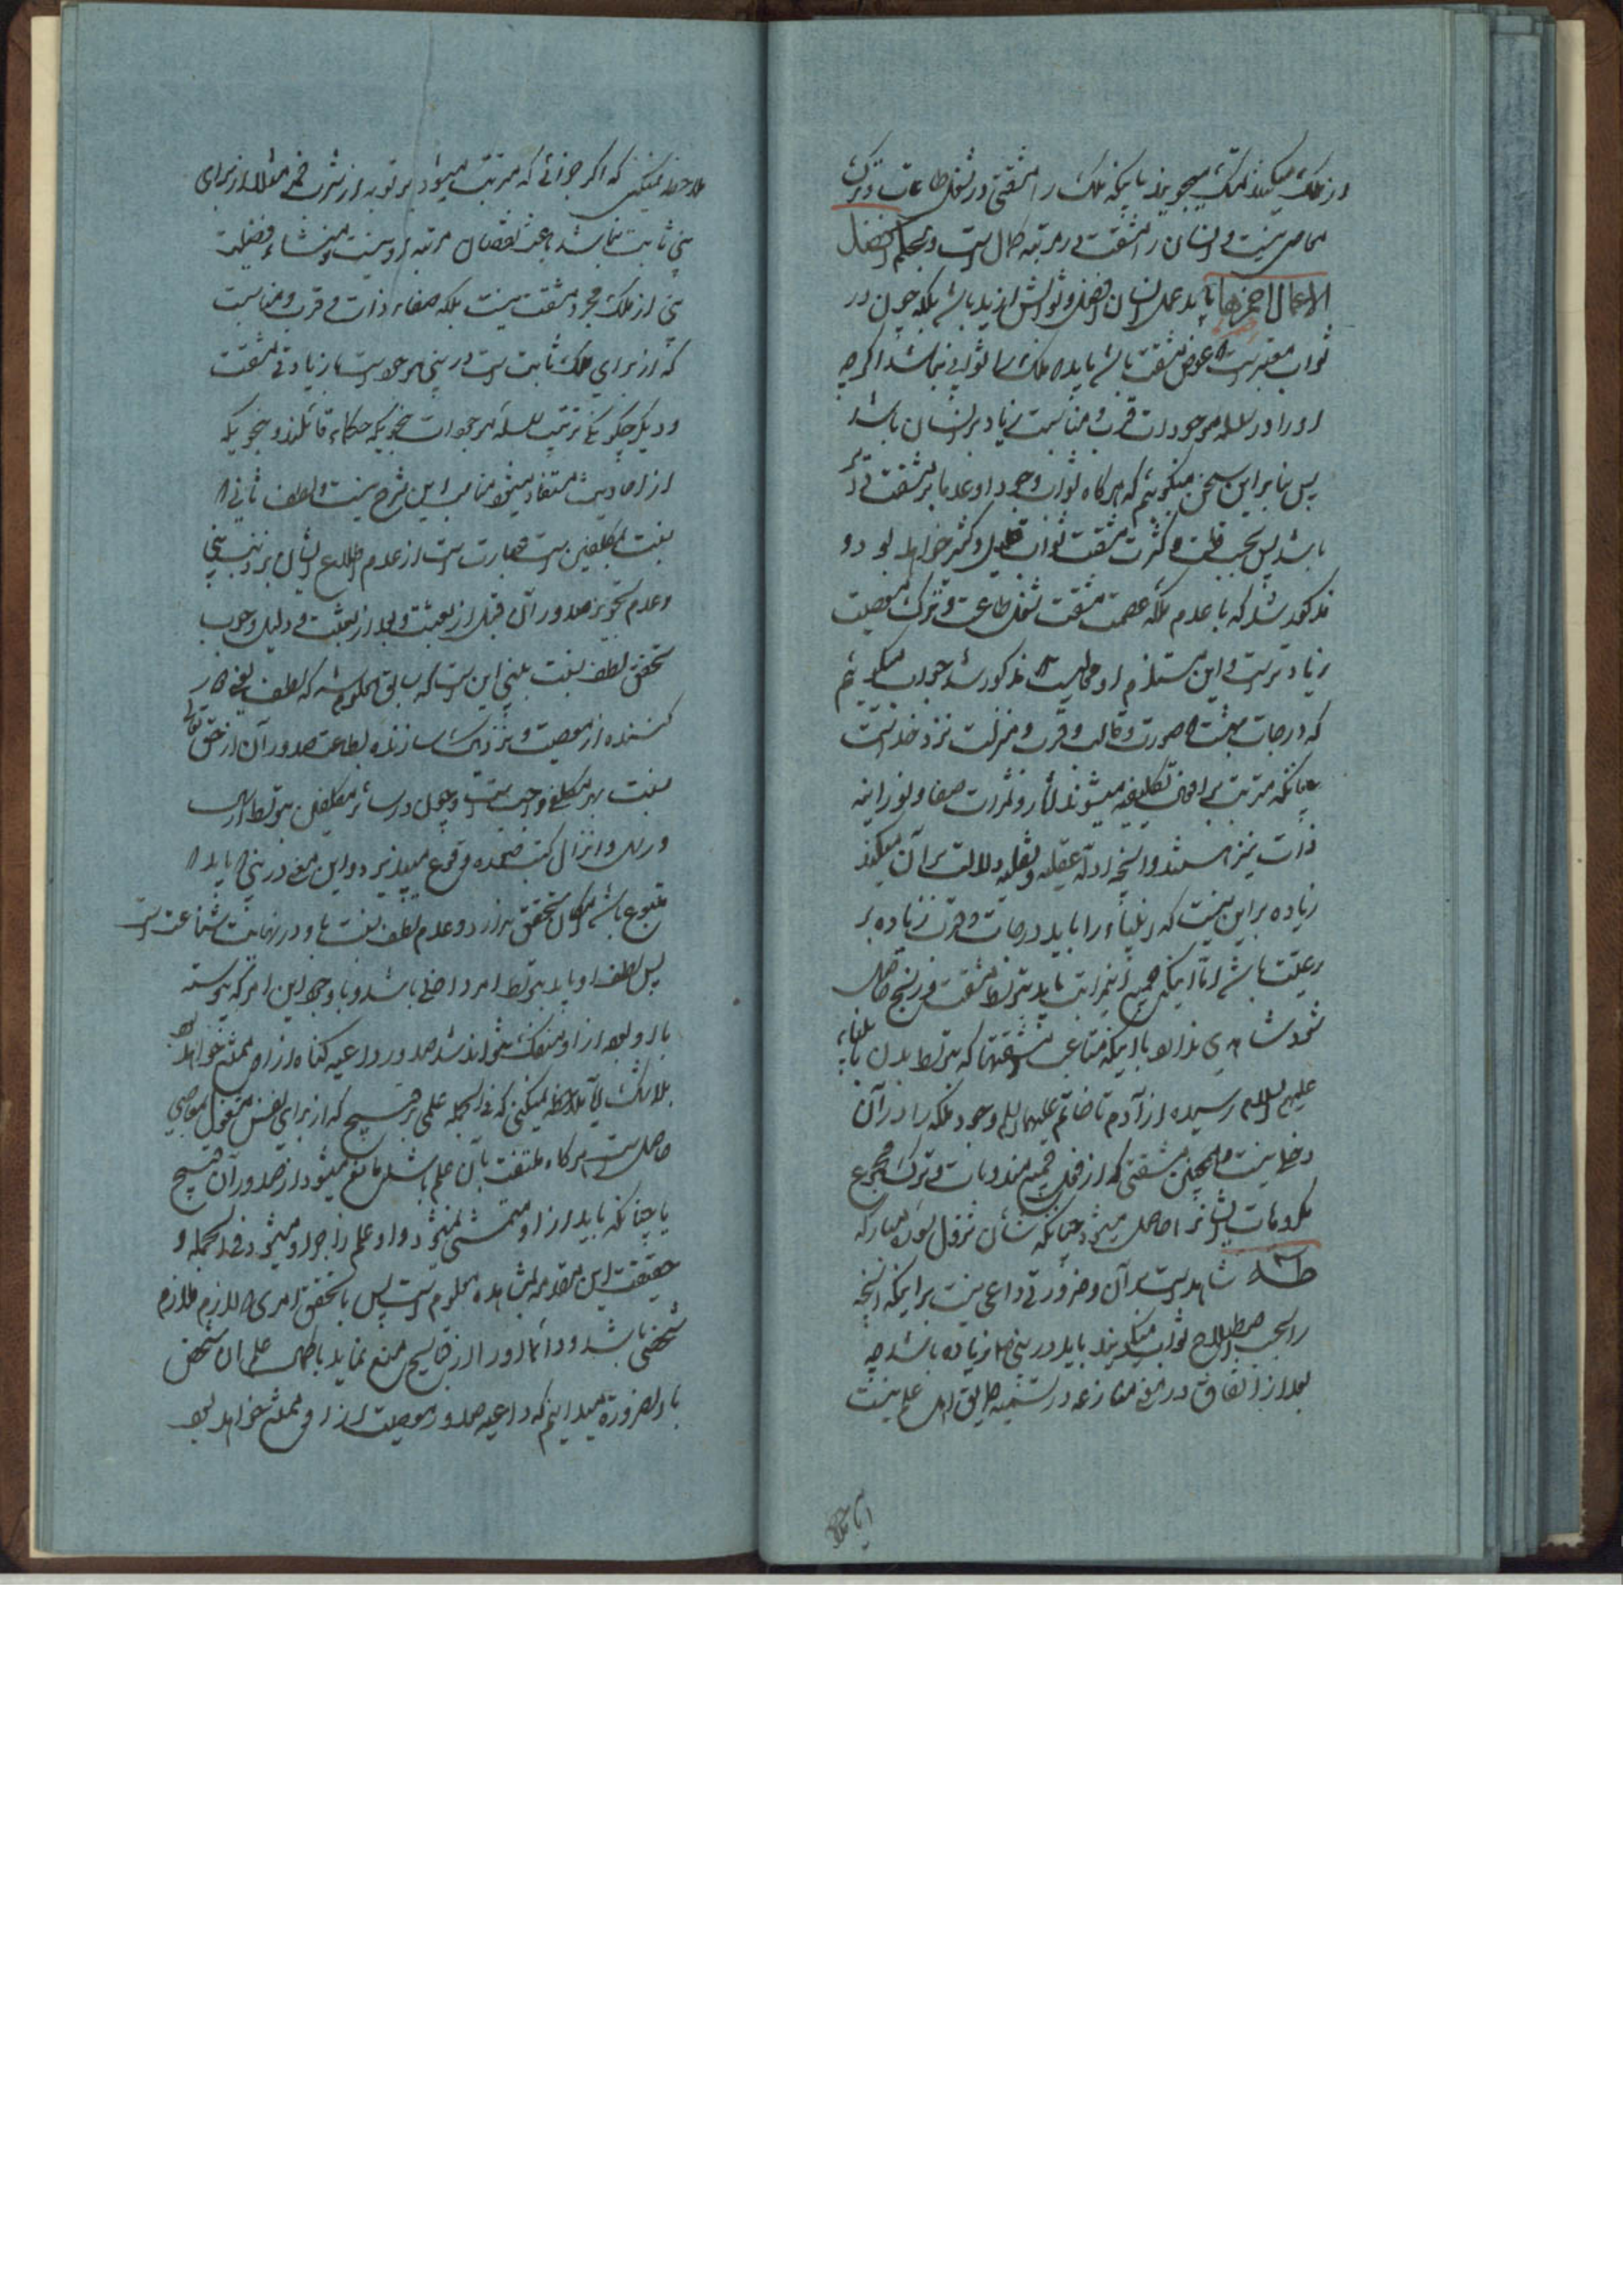 از ملک میکنند تمسک میجویند باینکه ملک را مشقتی در فعل طاعات و ترک
معاصی نیست و انسان را مشقت در مرتبه کمال است و بحکم افضل
الاعمال احمزها باید عمل انسان افضل و ثوابش ازید باشد بلکه چون در
ثواب معتبر است که عوض مشقت باشد باید که ملک را ثوابی نباشد اگرچه
او را در سلسله موجودات قرب و مناسبت زیاد بر انسان باشد
پس بنابر این سخن میگوییم که هرگاه ثواب وجودا و عدما بر مشقت
باشد پس بحسب قلت و کثرت مشقت ثواب قلیل و کثیر خواهد بود و
مذکور شد که با عدم ملکه عصمت مشقت فعل طاعت و ترک معصیت
زیادتر است و این مستلزم مذکور شد جواب میگوییم
که درجات بهشت که صورت و قالب و قرب و منزلت نزد خداست
چنانکه مترتب بر افعال تکلیفیه میشوند آثار و ثمرات صفا و نورانیه
ذات نیز هستند و آنچه ادله عقلیه و نقلیه دلالت بر آن میکنند
زیاده بر این نیست که انبیاء را باید درجات و قرب زیاده بر
رعیت باشد اما اینکه جمیع این مراتب باید بتوسط مشقت و رنج حاصل
شود شاهدی ندارد با اینکه متاعب و مشقتها که بتوسط بدن بانبیاء
علیهم السلام رسیده از آدم تا خاتم علیهما السلام وجود ملکه را در آن
دخلی نیست و همچنین مشقتی که از فعل جمیع مندوبات و ترک مجموع
مکروهات ایشانرا حاصل میشود چنانکه شان نزول سوره مبارکه
طه شاهد است بر آن و ضرورتی داعی نیست بر اینکه آنچه
را بحسب اصطلاح ثواب میگویند باید در نبی زیاده باشد چه
بعد از اتفاق در معنی منازعه در تسمیه طریق اهل علم نیست
آیا ملاحظه
ملاحظه نمیکنی که اگر جزائی که مترتب میشود بر توبه از شرب خمر مثلا از برای
نبی ثابت نباشد باعث نقصان مرتبه او نیست و منشاء فضیلت
نبی از ملک مجرد مشقت نیست بلکه صفاء ذات و قرب و مناسبت
که از برای ملک ثابت است در نبی موجود است با زیادتی مشقت
و دیگر چگونگی ترتیب سلسله موجودات بنحویکه حکماء قائلند و بنحویکه
از احادیث مستفاد میشود مناسب این شرح نیست و لطف ثانی که
نسبت بمکلفین است عبارت است از عدم اطلاع ایشان بر ذنب نبی
و عدم تجویز صدور آن قبل از بعثت و بعد از بعثت و دلیل وجوب
تحقق لطف نسبت بنبی این است که سابق معلوم شد که لطف یعنی دور
کننده از معصیت و نزدیک سازنده بطاعت صدور آن از حق تعالی
نسبت بهر مکلف واجب است و چون در سائر مکلفین بتوسط ارسال
رسل و انزال کتب ضمیمه وقوع میپذیرد و این معنی در نبی که باید که
متبوع باشد امکان تحقق ندارد و عدم لطف نسبت باو در نهایت شناعت است
پس لطف او باید بتوسط امر داخلی باشد و با وجود این امر که پیوسته
با او بوده از او منفک نتواند شد صدور داعیه گناه از او ممتنع خواهد بود
بلاشک آیا ملاحظه نمیکنی که فی الجمله علمی بر قبیح که از برای نفس مشغول بمعاصی
حاصل است هرگاه ملتفت بآن علم باشد مانع میشود از صدور آن قبیح
یا چنانکه باید از او متمشی نمیشود و او علم زاجر او میشود فی الجمله و
حقیقت این مقدمه بمشاهده معلوم است پس با تحقق امری که لازم ملازم
شخصی باشد و دائما او را از قبایح منع نماید با کمال علم آن شخص
بالضرورة میدانیم که داعیه صدور معصیت از او ممتنع خواهد بود